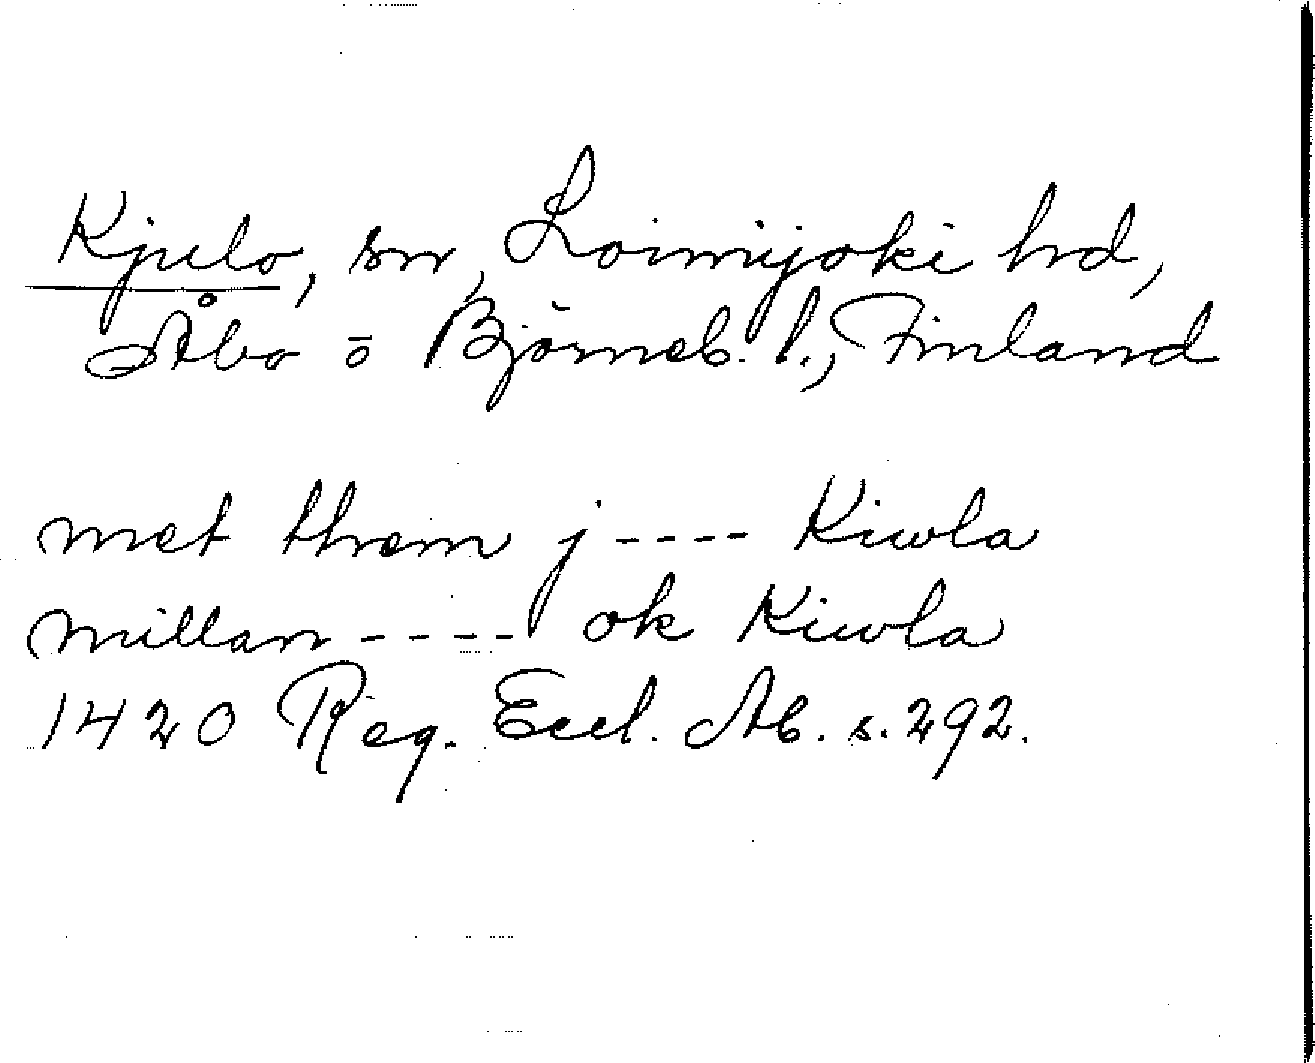 Kjulo, sn, Loimijoki hd,
Åbo o Björneb. l., Finland
met them j ---- Kiwla
millan ---- ok Kiwla
1420 Reg. Eccl. Ab. s. 292.